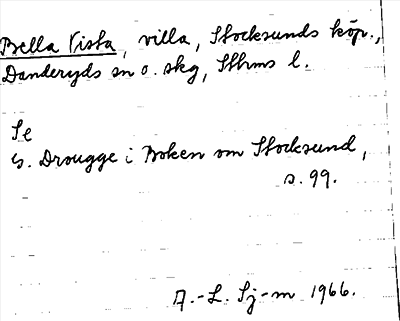 Bella Vista, villa, Stocksunds köp.,
Danderyds sn o. skg, Sthms l.
Se
G. Drougge i Boken om Stocksund,
s. 99.
A.-L. Sj-m 1966.